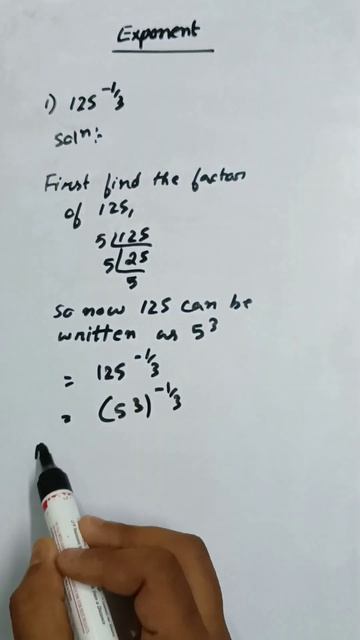 Exponent
1) 125^-1/3
Solⁿ:
First find the factors
of 125,
5 125
5 25
5
So now 125 can be
written as 5³
= 125^-1/3
= (53)^-1/3